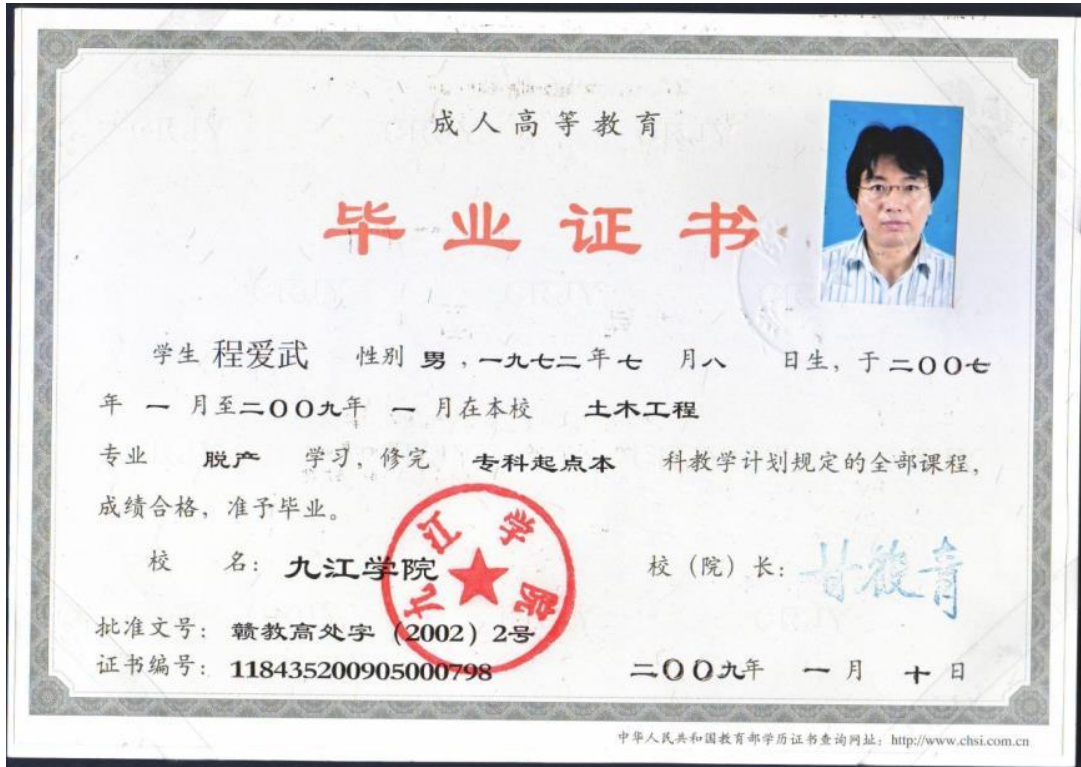 成人高等教育
毕业证书
学生 程爱武 性别 男，一九七二年七 月八 日生，于二00七
年 一 月至二00九年 一 月在本校 土木工程
专业 脱产 学习，修完 专科起点本 科教学计划规定的全部课程，
成绩合格，准予毕业。
校 名：九江学院 校（院）长：甘筱青
九江学院
批准文号：赣教高处字（2002）2号
证书编号：118435200905000798 二00九年 一月 十日
中华人民共和国教育部学历证书查询网址：http://www.chsi.com.cn